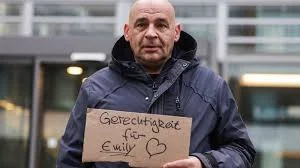 Gerechtigkeit
für
Emily ♡